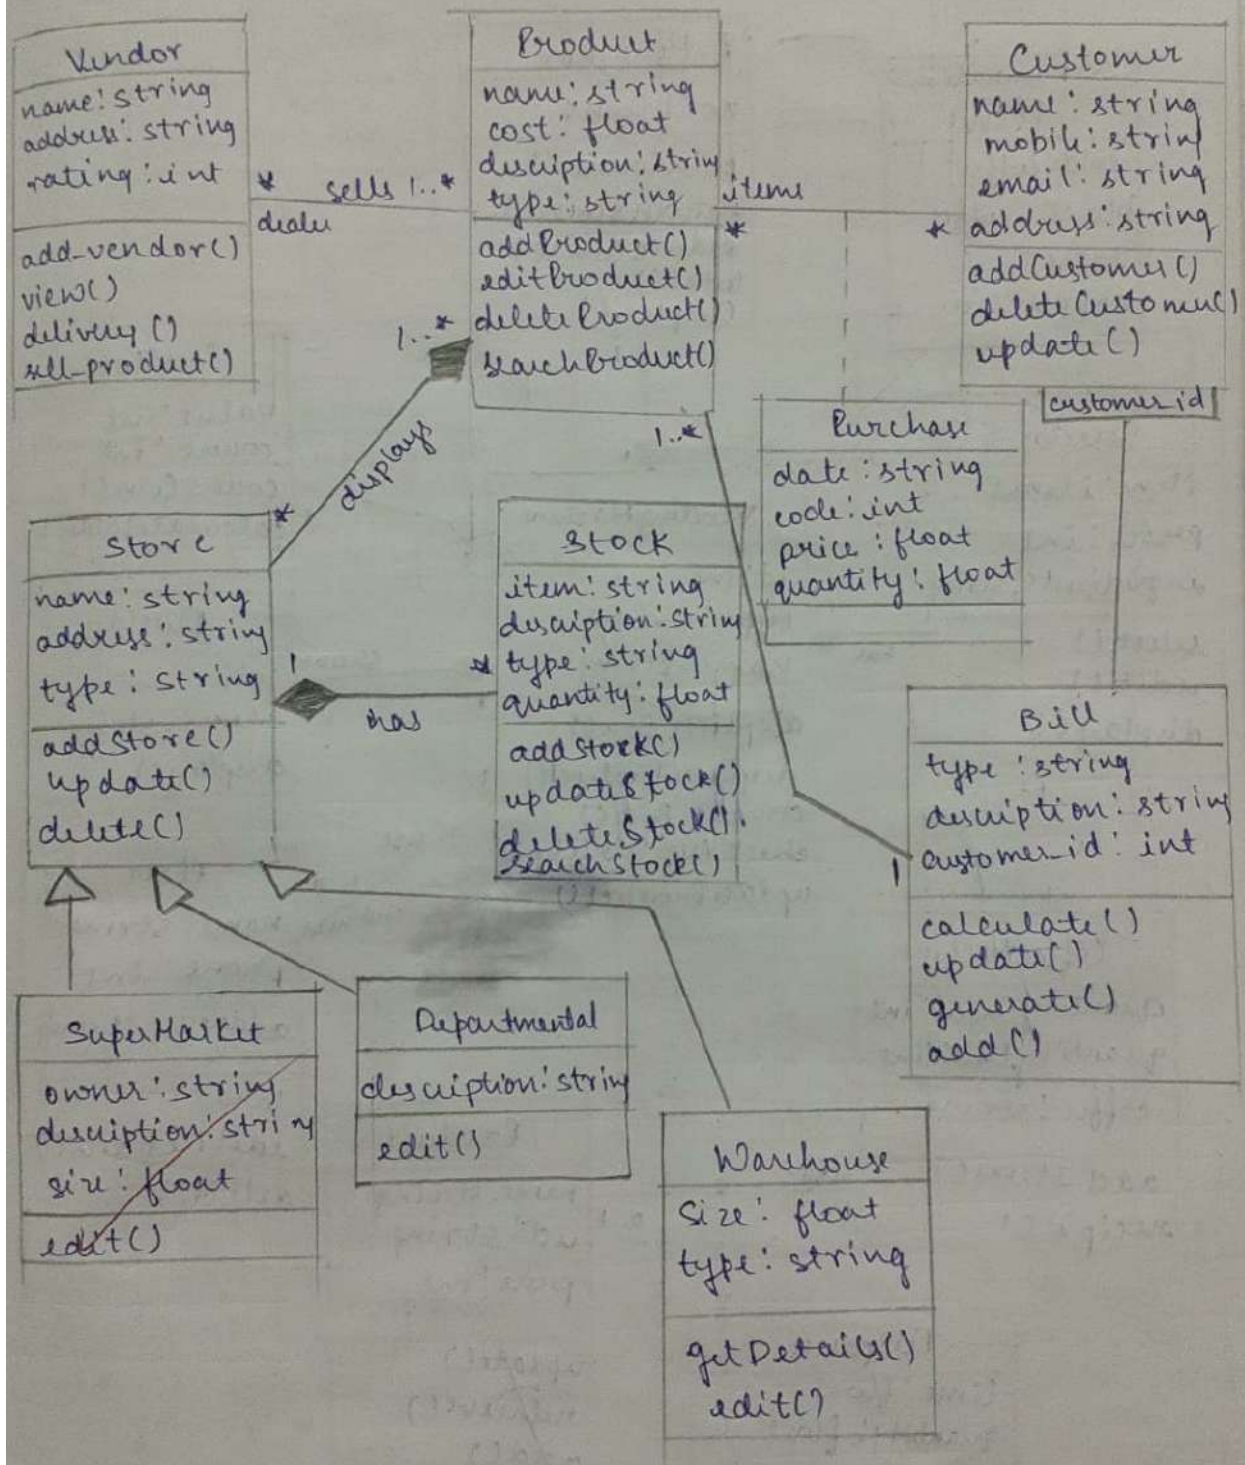 Vendor
name: string
address: string
rating: int
add_vendor()
view()
delivery()
sell_product()
* sells 1..*
dealer
Product
name: string
cost: float
description: string
type: string
addProduct()
editProduct()
deleteProduct()
searchProduct()
items
*
*
Customer
name: string
mobile: string
email: string
address: string
addCustomer()
deleteCustomer()
update()
customer_id
1..*
displays
*
1..*
Purchase
date: string
code: int
price: float
quantity: float
Store
name: string
address: string
type: string
addStore()
update()
delete()
1
*
has
Stock
item: string
description: string
type: string
quantity: float
addStock()
updateStock()
deleteStock()
searchStock()
Bill
type: string
description: string
customer_id: int
calculate()
update()
generate()
add()
1
SuperMarket
owner: string
description: string
size: float
edit()
Departmental
description: string
edit()
Warehouse
Size: float
type: string
getDetails()
edit()